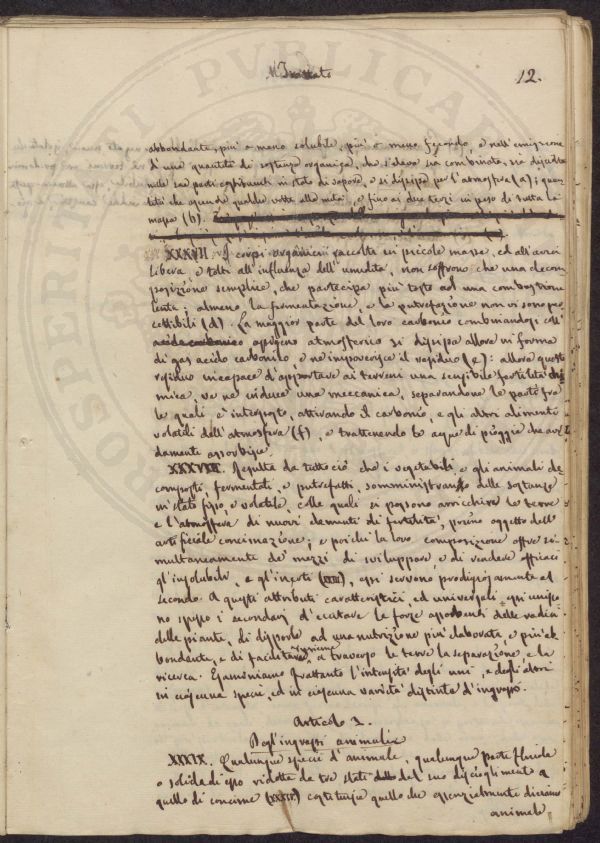 12.
abbondante, più o meno solubile, più o meno fecondo, e nell'emissione
d'una quantità di sostanza organica, che s'eleva sia combinata, sia disciolta
nelle sue parti costituenti in stato di vapore, e si dissipa per l'atmosfera (a); quan-
tità che ascende qualche volta alla metà, e fino ai due terzi in peso di tutta la
massa (b).
XXXVII. I corpi organici raccolti in piccole masse, ed all'aria
libera, e tolti all'influenza dell'umidità, non soffrono che una decom
posizione semplice, che partecipa più tosto ad una combustione
lenta; almeno la fermentazione, e la putrefazione non vi sono per
cettibili (d). La maggior parte del loro carbonio combinandosi coll'
ossigeno atmosferico si dissipa allora in forma
di gas acido carbonico e ne impoverisce il residuo (e): allora questo
residuo incapace d'apportare ai terreni una sensibile fertilità chi
mica, ve ne induce una meccanica, separandone le parti fra
le quali è interposto, attivando il carbonio, e gli altri alimenti
volatili dell'atmosfera (f), e trattenendo le acque di pioggia che avi
damente assorbisce.
XXXVIII. Risulta da tutto ciò che i vegetabili, e gli animali de
composti, fermentati, e putrefatti, somministrano delle sostanze
in stato fisso, e volatile, colle quali si possono arricchire le terre
e l'atmosfera di nuovi elementi di fertilità, primo oggetto dell'
artificiale concimazione; e poiché la loro composizione offre si-
multaneamente de' mezzi di sviluppare, e di rendere efficaci
gl'insolubili, e gl'inerti (XXIII), essi servono prodigiosamente al
secondo. A questi attributi caratteristici, ed universali, essi unisco
no spesso i secondarj d'eccitare le forze assorbenti delle radici
delle piante, di disporle ad una nutrizione più elaborata, e più ab
bondante, e di facilitarne a traverso le terre la separazione, e la
ricerca. Esaminiamo frattanto l'intensità degli uni, e degli altri
in ciascuna specie, ed in ciascuna varietà distinta d'ingrasso.
Articolo 1.
Degl'ingrassi animali
XXXIX. Qualunque specie d'animale, qualunque parte fluida
o solida di esso ridotta da tre stati del suo discioglimento a
quello di concime (XXXIV) costituisce quello che essenzialmente diciamo
animale